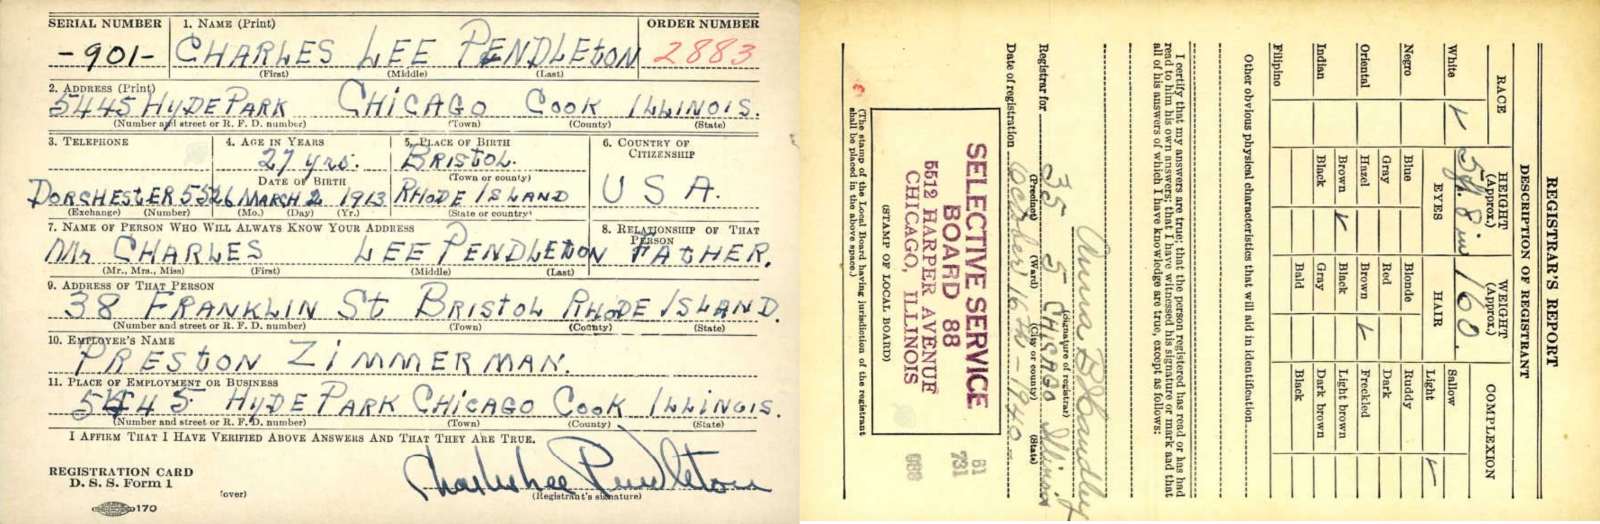 SERIAL NUMBER
1. NAME (Print)
ORDER NUMBER
-901-
CHARLES LEE PENDLETON
2883
(First) (Middle) (Last)
2. ADDRESS (Print)
5445 HYDE PARK CHICAGO COOK ILLINOIS.
(Number and street or R. F. D. number) (Town) (County) (State)
3. TELEPHONE
4. AGE IN YEARS
5. PLACE OF BIRTH
6. COUNTRY OF CITIZENSHIP
27 yrs.
BRISTOL.
DATE OF BIRTH
(Town or county)
DORCHESTER 5526 MARCH 2 1913 RHODE ISLAND
USA.
(Exchange) (Number) (Mo.) (Day) (Yr.) (State or country)
7. NAME OF PERSON WHO WILL ALWAYS KNOW YOUR ADDRESS
8. RELATIONSHIP OF THAT PERSON
Mr CHARLES LEE PENDLETON FATHER.
(Mr., Mrs., Miss) (First) (Middle) (Last)
9. ADDRESS OF THAT PERSON
38 FRANKLIN St BRISTOL RHODE ISLAND.
(Number and street or R. F. D. number) (Town) (County) (State)
10. EMPLOYER'S NAME
PRESTON ZIMMERMAN.
11. PLACE OF EMPLOYMENT OR BUSINESS
5445 HYDE PARK CHICAGO COOK ILLINOIS.
(Number and street or R. F. D. number) (Town) (County) (State)
I AFFIRM THAT I HAVE VERIFIED ABOVE ANSWERS AND THAT THEY ARE TRUE.
REGISTRATION CARD
D. S. S. Form 1
(over)
Charles Lee Pendleton
(Registrant's signature)
170
REGISTRAR'S REPORT
DESCRIPTION OF REGISTRANT
RACE
HEIGHT (Approx.)
WEIGHT (Approx.)
COMPLEXION
5 ft. 8 in
160.
EYES
HAIR
White
Negro
Oriental
Indian
Filipino
Blue
Gray
Hazel
Brown
Black
Blonde
Red
Brown
Black
Gray
Bald
Sallow
Light
Ruddy
Dark
Freckled
Light brown
Dark brown
Black
Other obvious physical characteristics that will aid in identification
I certify that my answers are true; that the person registered has read or has had
read to him his own answers; that I have witnessed his signature or mark and that
all of his answers of which I have knowledge are true, except as follows:
(Signature of registrar)
Registrar for 35 5 CHICAGO Illinois
(Precinct) (Ward) (City or county) (State)
Date of registration October 16th - 1940
SELECTIVE SERVICE
BOARD 88
5512 HARPER AVENUE
CHICAGO, ILLINOIS
61
731
088
(STAMP OF LOCAL BOARD)
(The stamp of the Local Board having jurisdiction of the registrant
shall be placed in the above space.)